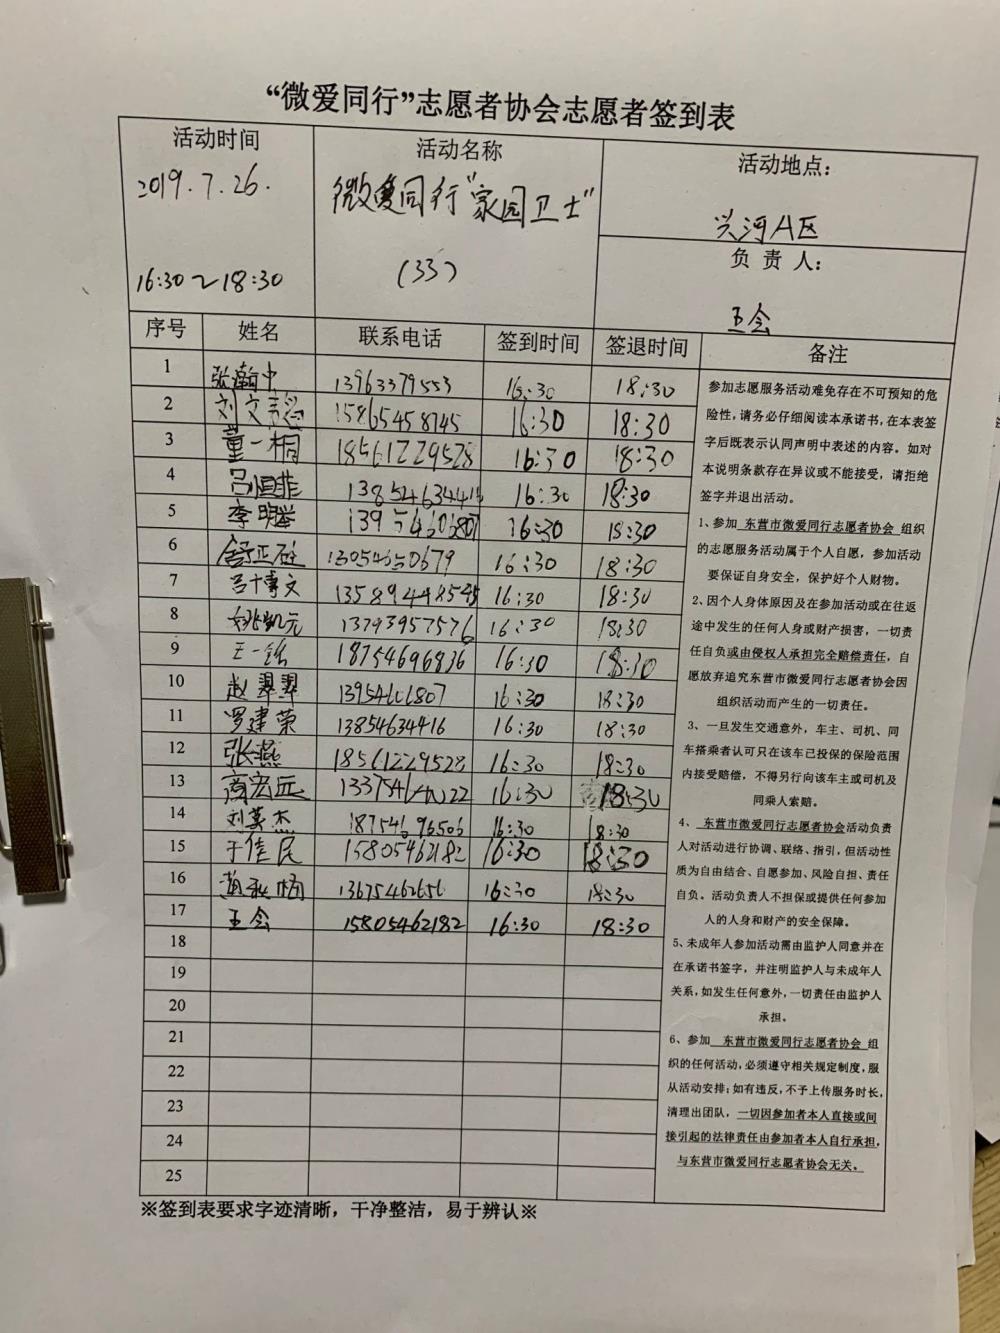 “微爱同行”志愿者协会志愿者签到表
活动时间
2019.7.26.
16:30～18:30
活动名称
微爱同行"家园卫士"
(33)
活动地点：
兴河A区
负 责 人：
王会
序号 姓名 联系电话 签到时间 签退时间 备注
1 张瀚中 13963379553 16:30 18:30
2 刘文 15865458745 16:30 18:30
3 童一桐 18561229528 16:30 18:30
4 吕恒菲 13854634414 16:30 18:30
5 李明举 16:30 18:30
6 舒正 13054650679 16:30 18:30
7 吕博文 13589448545 16:30 18:30
8 姚凯元 13793957576 16:30 18:30
9 王一 18754696836 16:30 18:30
10 赵翠翠 16:30 18:30
11 罗建荣 13854634416 16:30 18:30
12 张燕 18561229528 16:30 18:30
13 商宏远 16:30 18:30
14 刘英杰 18754696506 16:30 18:30
15 于佳民 15805462182 16:30 18:30
16 13675462656 16:30 18:30
17 王会 15805462182 16:30 18:30
18
19
20
21
22
23
24
25
参加志愿服务活动难免存在不可预知的危
险性，请务必仔细阅读本承诺书，在本表签
字后既表示认同声明中表述的内容。如对
本说明条款存在异议或不能接受，请拒绝
签字并退出活动。
1、参加 东营市微爱同行志愿者协会 组织
的志愿服务活动属于个人自愿，参加活动
要保证自身安全，保护好个人财物。
2、因个人身体原因及在参加活动或在往返
途中发生的任何人身或财产损害，一切责
任自负或由侵权人承担完全赔偿责任，自
愿放弃追究东营市微爱同行志愿者协会因
组织活动而产生的一切责任。
3、一旦发生交通意外，车主、司机、同
车搭乘者认可只在该车已投保的保险范围
内接受赔偿，不得另行向该车主或司机及
同乘人索赔。
4、 东营市微爱同行志愿者协会活动负责
人对活动进行协调、联络、指引，但活动性
质为自由结合、自愿参加、风险自担、责任
自负。活动负责人不担保或提供任何参加
人的人身和财产的安全保障。
5、未成年人参加活动需由监护人同意并在
在承诺书签字，并注明监护人与未成年人
关系，如发生任何意外，一切责任由监护人
承担。
6、参加 东营市微爱同行志愿者协会 组
织的任何活动，必须遵守相关规定制度，服
从活动安排；如有违反，不予上传服务时长，
清理出团队，一切因参加者本人直接或间
接引起的法律责任由参加者本人自行承担，
与东营市微爱同行志愿者协会无关。
※签到表要求字迹清晰，干净整洁，易于辨认※